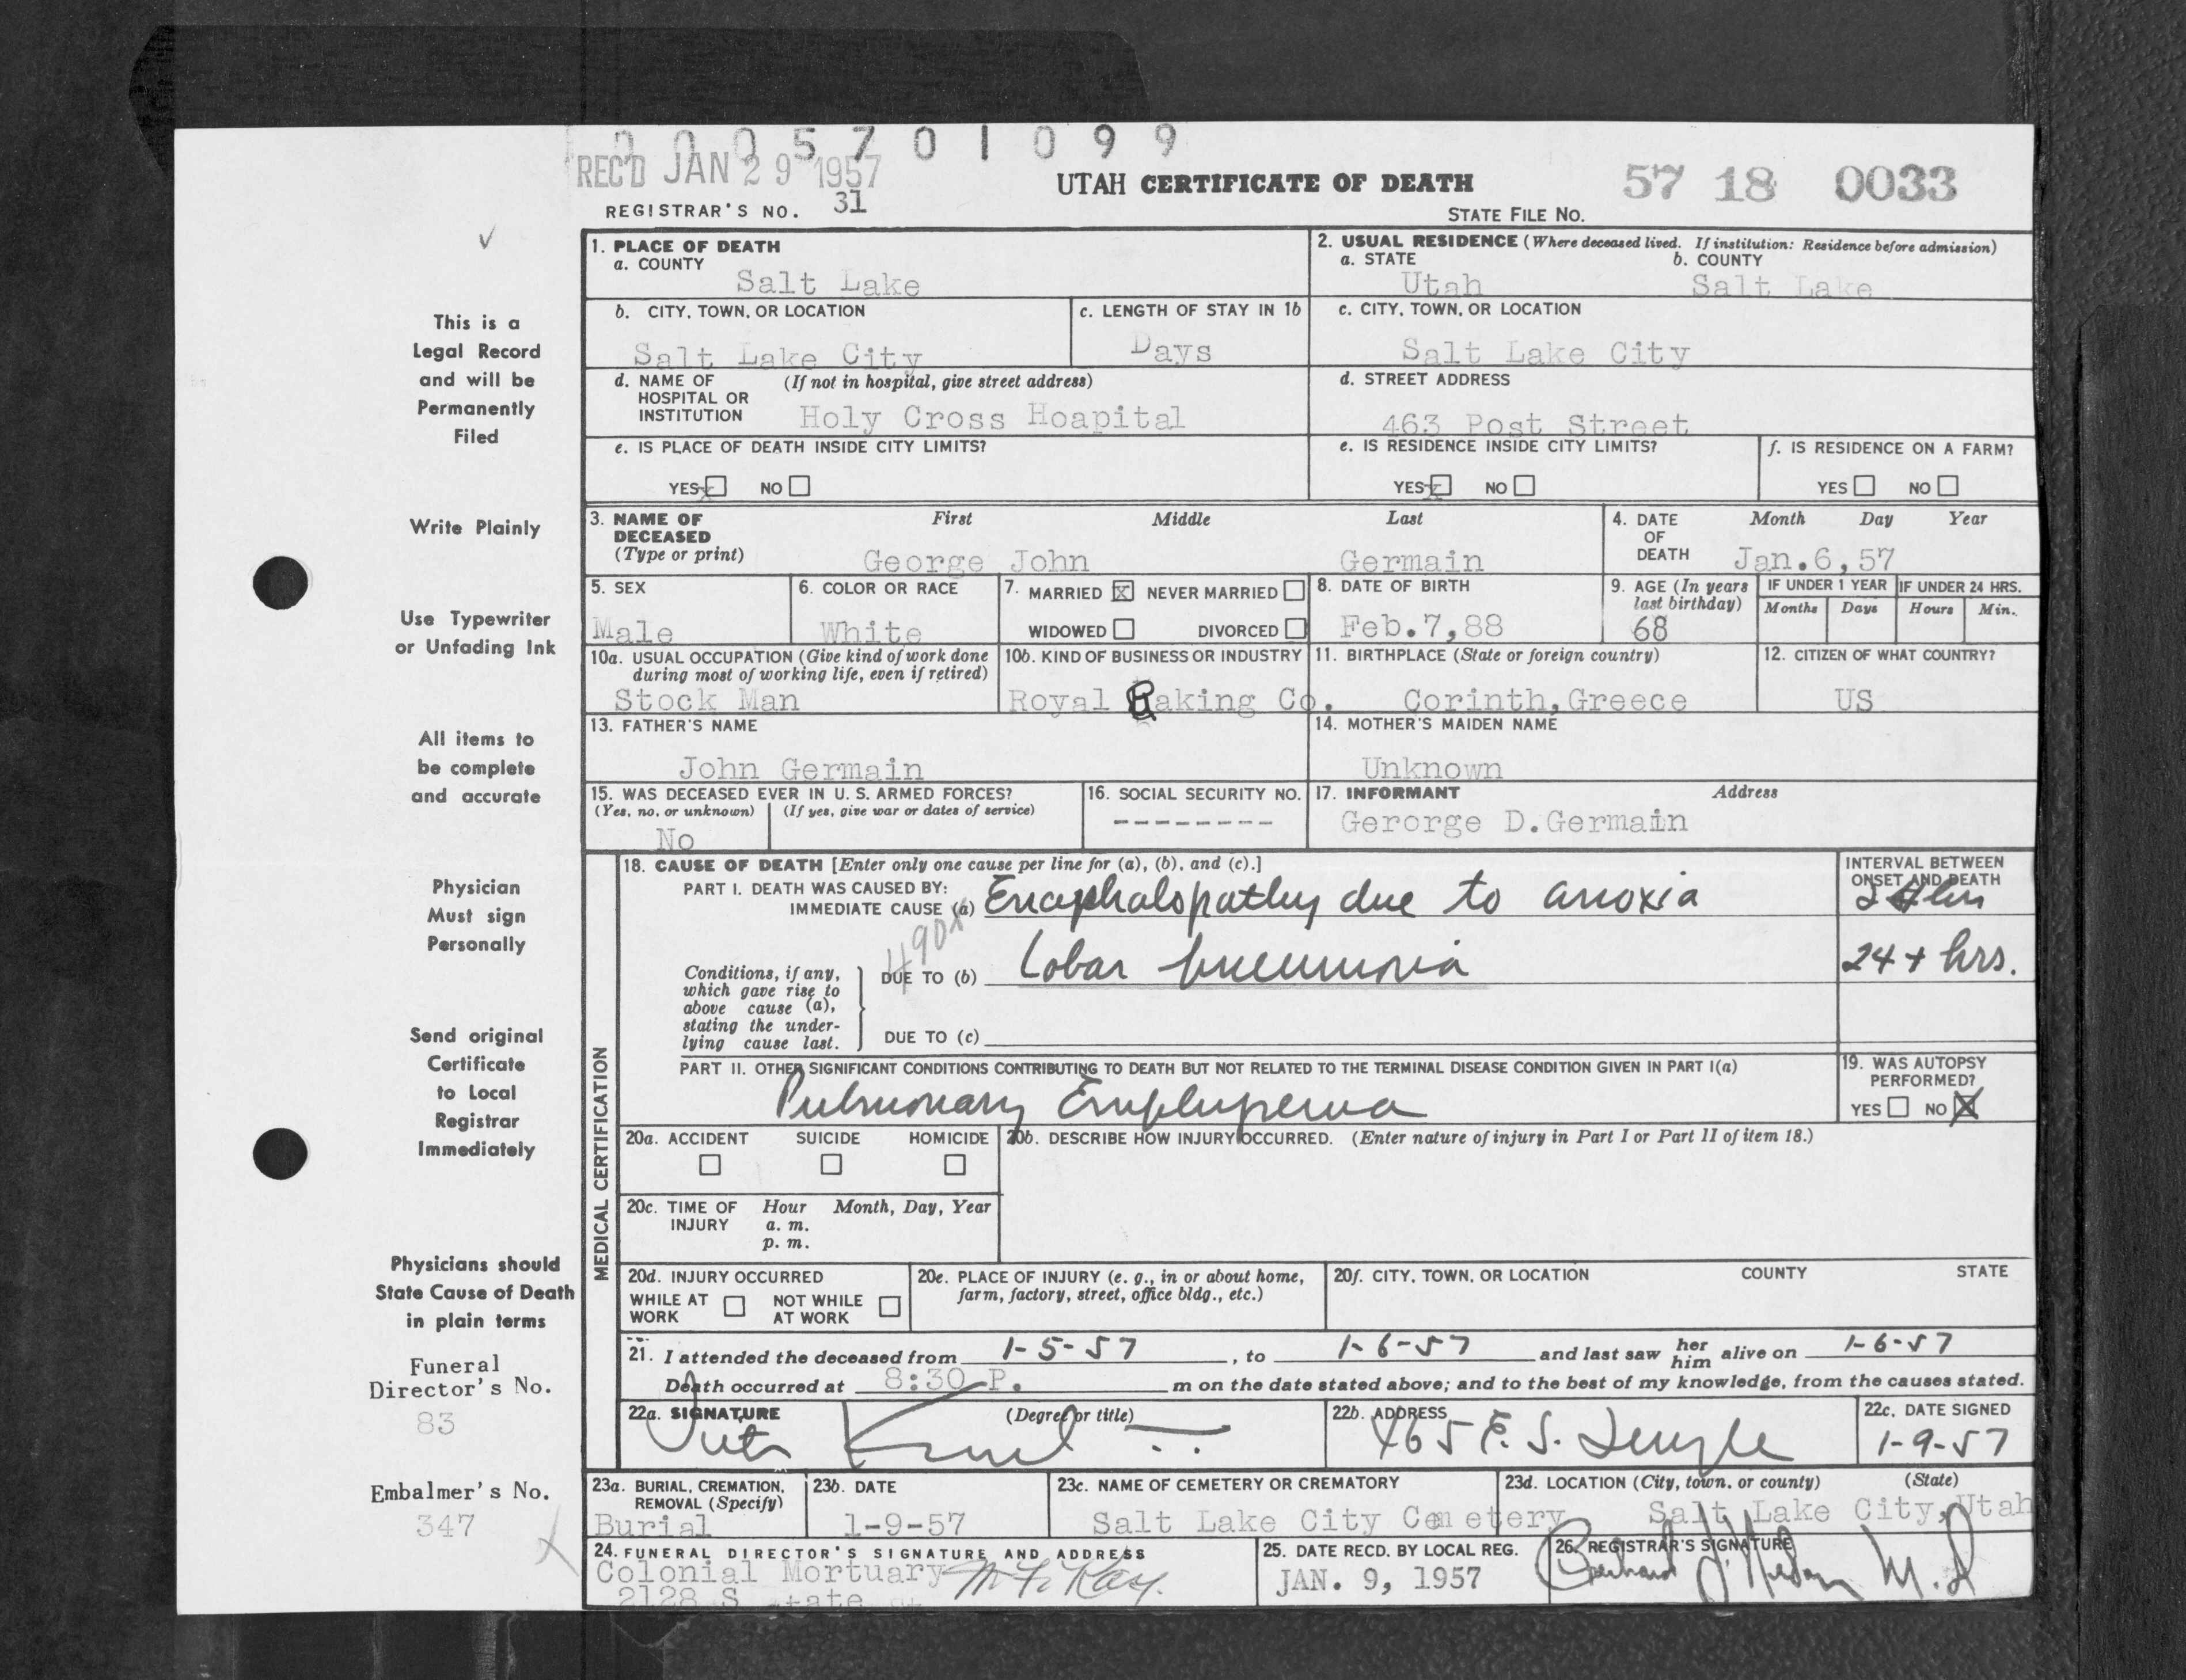 0005701099
REC'D JAN 29 1957
UTAH CERTIFICATE OF DEATH
57 18 0033
REGISTRAR'S NO. 31
STATE FILE NO.
This is a
Legal Record
and will be
Permanently
Filed
Write Plainly
Use Typewriter
or Unfading Ink
All items to
be complete
and accurate
Physician
Must sign
Personally
Send original
Certificate
to Local
Registrar
Immediately
Physicians should
State Cause of Death
in plain terms
Funeral
Director's No.
83
Embalmer's No.
347
1. PLACE OF DEATH
a. COUNTY
Salt Lake
2. USUAL RESIDENCE (Where deceased lived. If institution: Residence before admission)
a. STATE b. COUNTY
Utah Salt Lake
b. CITY, TOWN, OR LOCATION
Salt Lake City
c. LENGTH OF STAY IN 1b
Days
c. CITY, TOWN, OR LOCATION
Salt Lake City
d. NAME OF (If not in hospital, give street address)
HOSPITAL OR
INSTITUTION Holy Cross Hoapital
d. STREET ADDRESS
463 Post Street
e. IS PLACE OF DEATH INSIDE CITY LIMITS?
YES x NO
e. IS RESIDENCE INSIDE CITY LIMITS?
YES x NO
f. IS RESIDENCE ON A FARM?
YES NO
3. NAME OF First Middle Last
DECEASED
(Type or print) George John Germain
4. DATE Month Day Year
OF
DEATH Jan.6,57
5. SEX
Male
6. COLOR OR RACE
White
7. MARRIED X NEVER MARRIED
WIDOWED DIVORCED
8. DATE OF BIRTH
Feb.7,88
9. AGE (In years
last birthday)
68
IF UNDER 1 YEAR
Months Days
IF UNDER 24 HRS.
Hours Min.
10a. USUAL OCCUPATION (Give kind of work done
during most of working life, even if retired)
Stock Man
10b. KIND OF BUSINESS OR INDUSTRY
Royal Baking Co.
11. BIRTHPLACE (State or foreign country)
Corinth, Greece
12. CITIZEN OF WHAT COUNTRY?
US
13. FATHER'S NAME
John Germain
14. MOTHER'S MAIDEN NAME
Unknown
15. WAS DECEASED EVER IN U. S. ARMED FORCES?
(Yes, no, or unknown) (If yes, give war or dates of service)
No
16. SOCIAL SECURITY NO.
--------
17. INFORMANT Address
Gerorge D.Germain
MEDICAL CERTIFICATION
18. CAUSE OF DEATH [Enter only one cause per line for (a), (b), and (c).]
PART I. DEATH WAS CAUSED BY:
IMMEDIATE CAUSE (a) Encephalopathy due to anoxia
INTERVAL BETWEEN
ONSET AND DEATH
490x
Conditions, if any,
which gave rise to
above cause (a),
stating the under-
lying cause last.
DUE TO (b) Lobar pneumonia
24 + hrs.
DUE TO (c)
PART II. OTHER SIGNIFICANT CONDITIONS CONTRIBUTING TO DEATH BUT NOT RELATED TO THE TERMINAL DISEASE CONDITION GIVEN IN PART I(a)
Pulmonary Emphysema
19. WAS AUTOPSY
PERFORMED?
YES NO X
20a. ACCIDENT SUICIDE HOMICIDE
20b. DESCRIBE HOW INJURY OCCURRED. (Enter nature of injury in Part I or Part II of item 18.)
20c. TIME OF Hour Month, Day, Year
INJURY a. m.
p. m.
20d. INJURY OCCURRED
WHILE AT NOT WHILE
WORK AT WORK
20e. PLACE OF INJURY (e. g., in or about home,
farm, factory, street, office bldg., etc.)
20f. CITY, TOWN, OR LOCATION COUNTY STATE
21. I attended the deceased from 1-5-57, to 1-6-57 and last saw her him alive on 1-6-57
Death occurred at 8:30 P. m on the date stated above; and to the best of my knowledge, from the causes stated.
22a. SIGNATURE (Degree or title)
22b. ADDRESS
465 E. S. Temple
22c. DATE SIGNED
1-9-57
23a. BURIAL, CREMATION,
REMOVAL (Specify)
Burial
23b. DATE
1-9-57
23c. NAME OF CEMETERY OR CREMATORY
Salt Lake City Cemetery
23d. LOCATION (City, town, or county) (State)
Salt Lake City, Utah
24. FUNERAL DIRECTOR'S SIGNATURE AND ADDRESS
Colonial Mortuary
2128 S State St
25. DATE RECD. BY LOCAL REG.
JAN. 9, 1957
26. REGISTRAR'S SIGNATURE
M.D